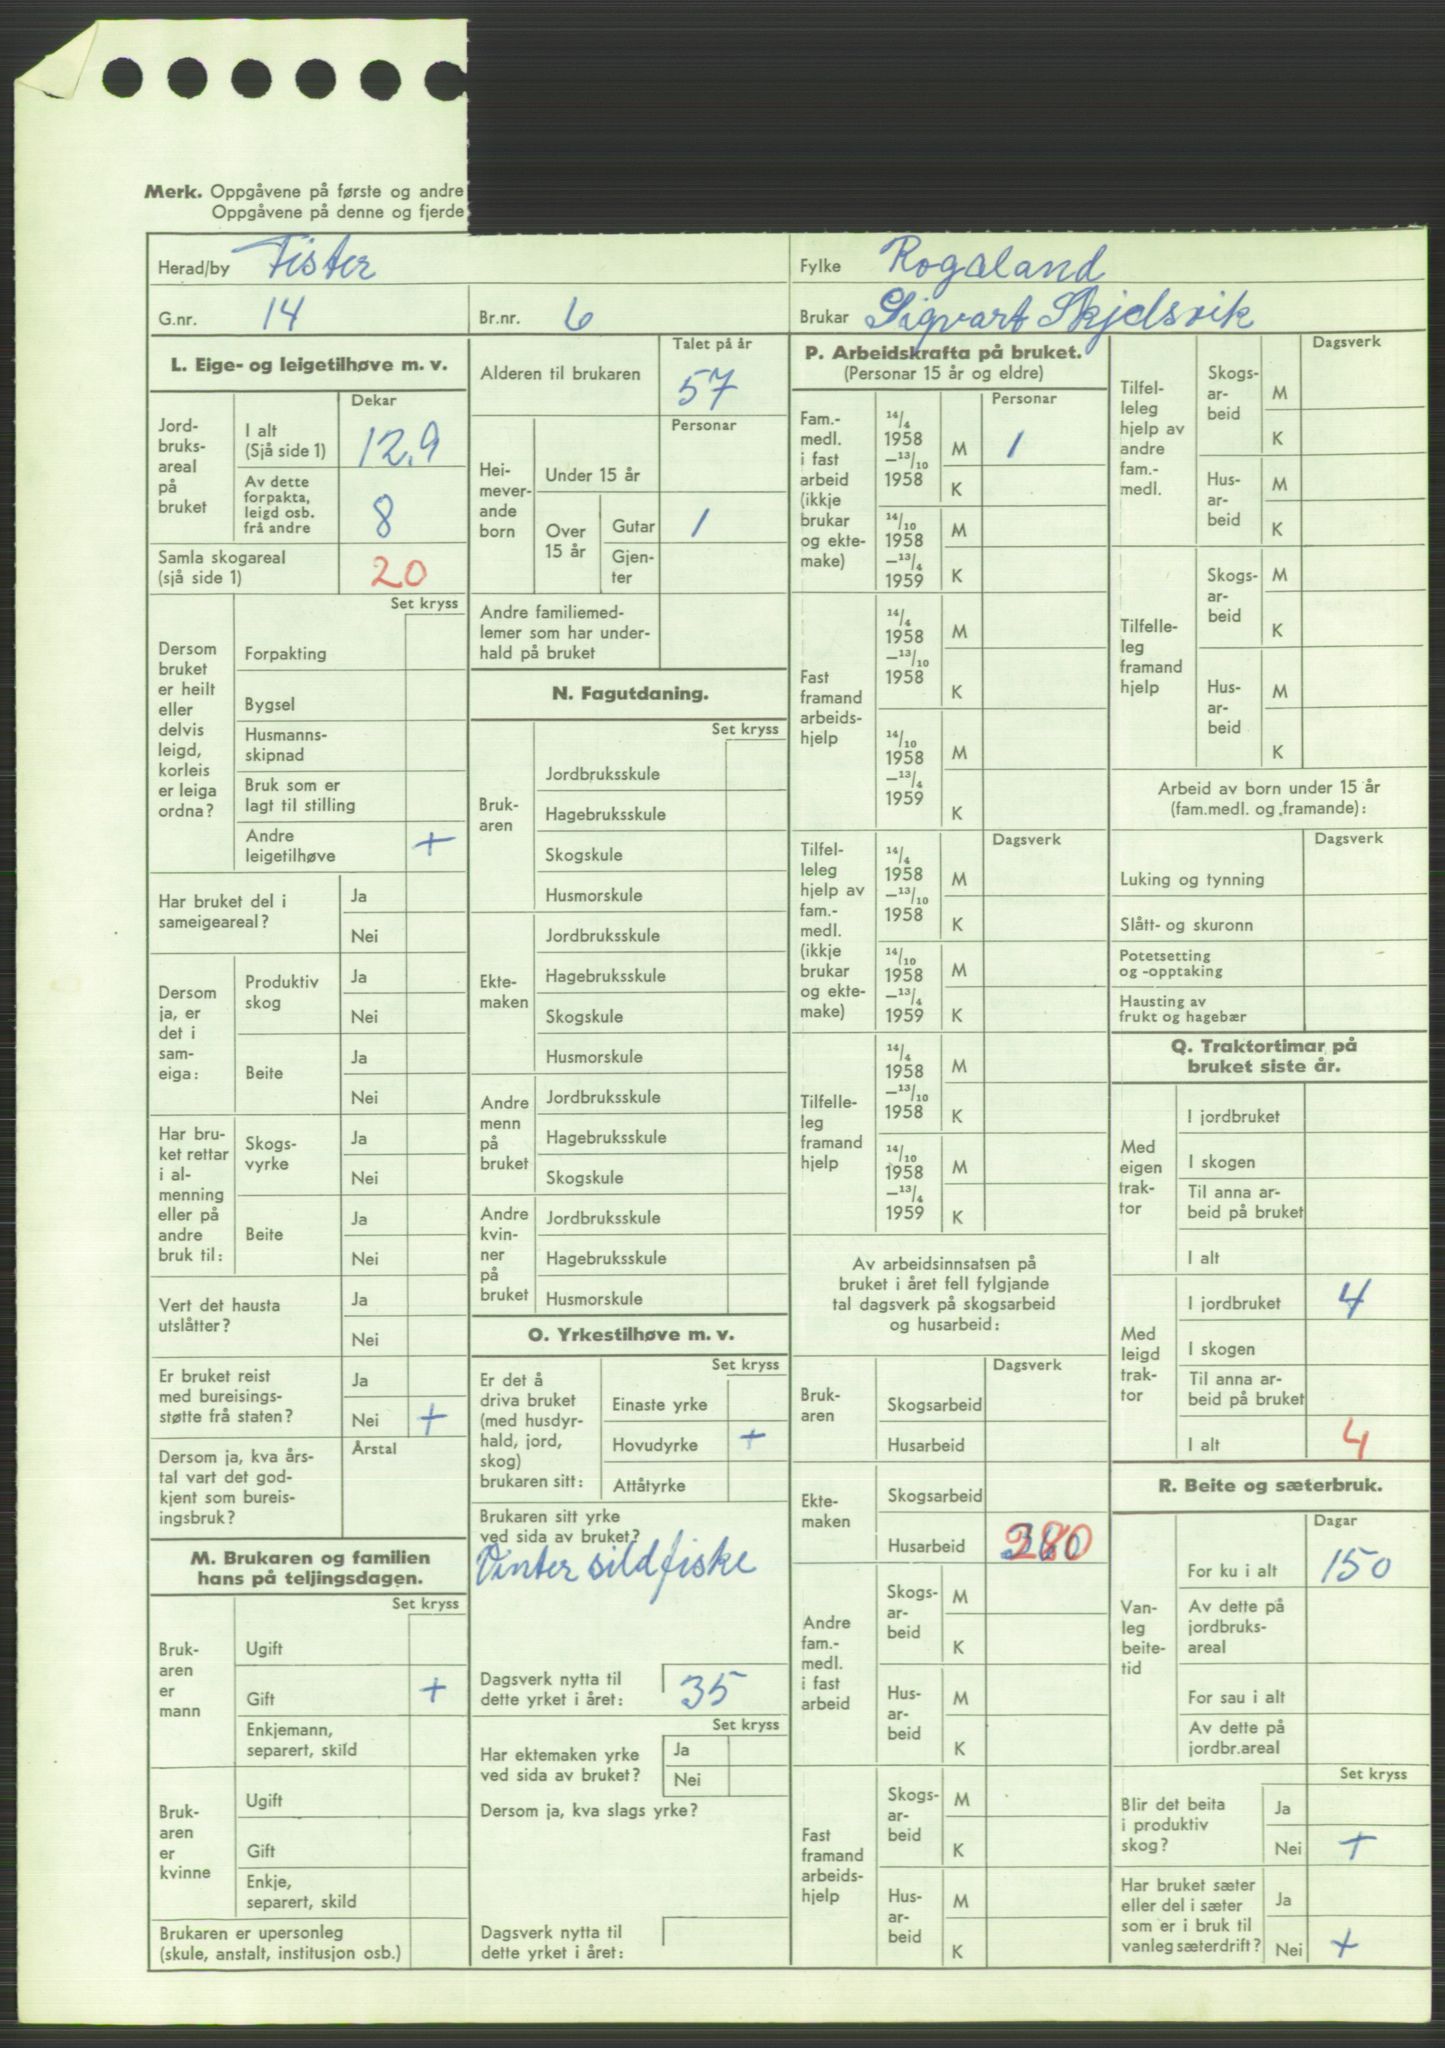 Merk. Oppgåvene på første og andre
Oppgåvene på denne og fjerde
Herad/by Fister
Fylke Rogaland
G.nr. 14
Br.nr. 6
Brukar Sigvart Skjelsvik
L. Eige- og leigetilhøve m. v.
Dekar
Jord-
bruks-
areal
på
bruket
I alt
(Sjå side 1) 12,9
Av dette
forpakta,
leigd osb.
frå andre 8
Samla skogareal
(sjå side 1) 20
Set kryss
Dersom
bruket
er heilt
eller
delvis
leigd,
korleis
er leiga
ordna?
Forpakting
Bygsel
Husmanns-
skipnad
Bruk som er
lagt til stilling
Andre
leigetilhøve +
Har bruket del i
sameigeareal?
Ja
Nei
Dersom
ja, er
det i
sam-
eiga:
Produktiv
skog
Ja
Nei
Beite
Ja
Nei
Har bru-
ket rettar
i al-
menning
eller på
andre
bruk til:
Skogs-
vyrke
Ja
Nei
Beite
Ja
Nei
Vert det hausta
utslåtter?
Ja
Nei
Er bruket reist
med bureisings-
støtte frå staten?
Ja
Nei +
Dersom ja, kva års-
tal vart det god-
kjent som bureis-
ingsbruk?
Årstal
M. Brukaren og familien
hans på teljingsdagen.
Set kryss
Bruk-
aren
er
mann
Ugift
Gift +
Enkjemann,
separert, skild
Bruk-
aren
er
kvinne
Ugift
Gift
Enkje,
separert, skild
Brukaren er upersonleg
(skule, anstalt, institusjon osb.)
Talet på år
Alderen til brukaren 57
Personar
Hei-
mever-
ande
born
Under 15 år
Over
15 år
Gutar 1
Gjen-
ter
Andre familiemed-
lemer som har under-
hald på bruket
N. Fagutdaning.
Set kryss
Bruk-
aren
Jordbruksskule
Hagebruksskule
Skogskule
Husmorskule
Ekte-
maken
Jordbruksskule
Hagebruksskule
Skogskule
Husmorskule
Andre
menn
på
bruket
Jordbruksskule
Hagebruksskule
Skogskule
Andre
kvin-
ner
på
bruket
Jordbruksskule
Hagebruksskule
Husmorskule
O. Yrkestilhøve m. v.
Set kryss
Er det å
driva bruket
(med husdyr-
hald, jord,
skog)
brukaren sitt:
Einaste yrke
Hovudyrke +
Attåtyrke
Brukaren sitt yrke
ved sida av bruket?
Vinter sildfiske
Dagsverk nytta til
dette yrket i året: 35
Set kryss
Har ektemaken yrke
ved sida av bruket?
Ja
Nei
Dersom ja, kva slags yrke?
Dagsverk nytta til
dette yrket i året:
P. Arbeidskrafta på bruket.
(Personar 15 år og eldre)
Personar
Fam.-
medl.
i fast
arbeid
(ikkje
brukar
og ekte-
make)
14/4
1958
—13/10
1958
M 1
K
14/10
1958
—13/4
1959
M
K
Fast
framand
arbeids-
hjelp
14/4
1958
—13/10
1958
M
K
14/10
1958
—13/4
1959
M
K
Dagsverk
Tilfel-
leleg
hjelp av
fam.-
medl.
(ikkje
brukar
og ekte-
make)
14/4
1958
—13/10
1958
M
K
14/10
1958
—13/4
1959
M
K
Tilfelle-
leg
framand
hjelp
14/4
1958
—13/10
1958
M
K
14/10
1958
—13/4
1959
M
K
Av arbeidsinnsatsen på
bruket i året fell fylgjande
tal dagsverk på skogsarbeid
og husarbeid:
Dagsverk
Bruk-
aren
Skogsarbeid
Husarbeid
Ekte-
maken
Skogsarbeid
Husarbeid 280
Andre
fam.-
medl.
i fast
arbeid
Skogs-
ar-
beid
M
K
Hus-
ar-
beid
M
K
Fast
framand
arbeids-
hjelp
Skogs-
ar-
beid
M
K
Hus-
ar-
beid
M
K
Dagsverk
Tilfel-
leleg
hjelp av
andre
fam.-
medl.
Skogs-
ar-
beid
M
K
Hus-
ar-
beid
M
K
Tilfelle-
leg
framand
hjelp
Skogs-
ar-
beid
M
K
Hus-
ar-
beid
M
K
Arbeid av born under 15 år
(fam.medl. og framande):
Dagsverk
Luking og tynning
Slått- og skuronn
Potetsetting
og -opptaking
Hausting av
frukt og hagebær
Q. Traktortimar på
bruket siste år.
Med
eigen
trak-
tor
I jordbruket
I skogen
Til anna ar-
beid på bruket
I alt
Med
leigd
trak-
tor
I jordbruket 4
I skogen
Til anna ar-
beid på bruket
I alt 4
R. Beite og sæterbruk.
Dagar
Van-
leg
beite-
tid
For ku i alt 150
Av dette på
jordbruks-
areal
For sau i alt
Av dette på
jordbr.areal
Set kryss
Blir det beita
i produktiv
skog?
Ja
Nei +
Har bruket sæter
eller del i sæter
som er i bruk til
vanleg sæterdrift?
Ja
Nei +